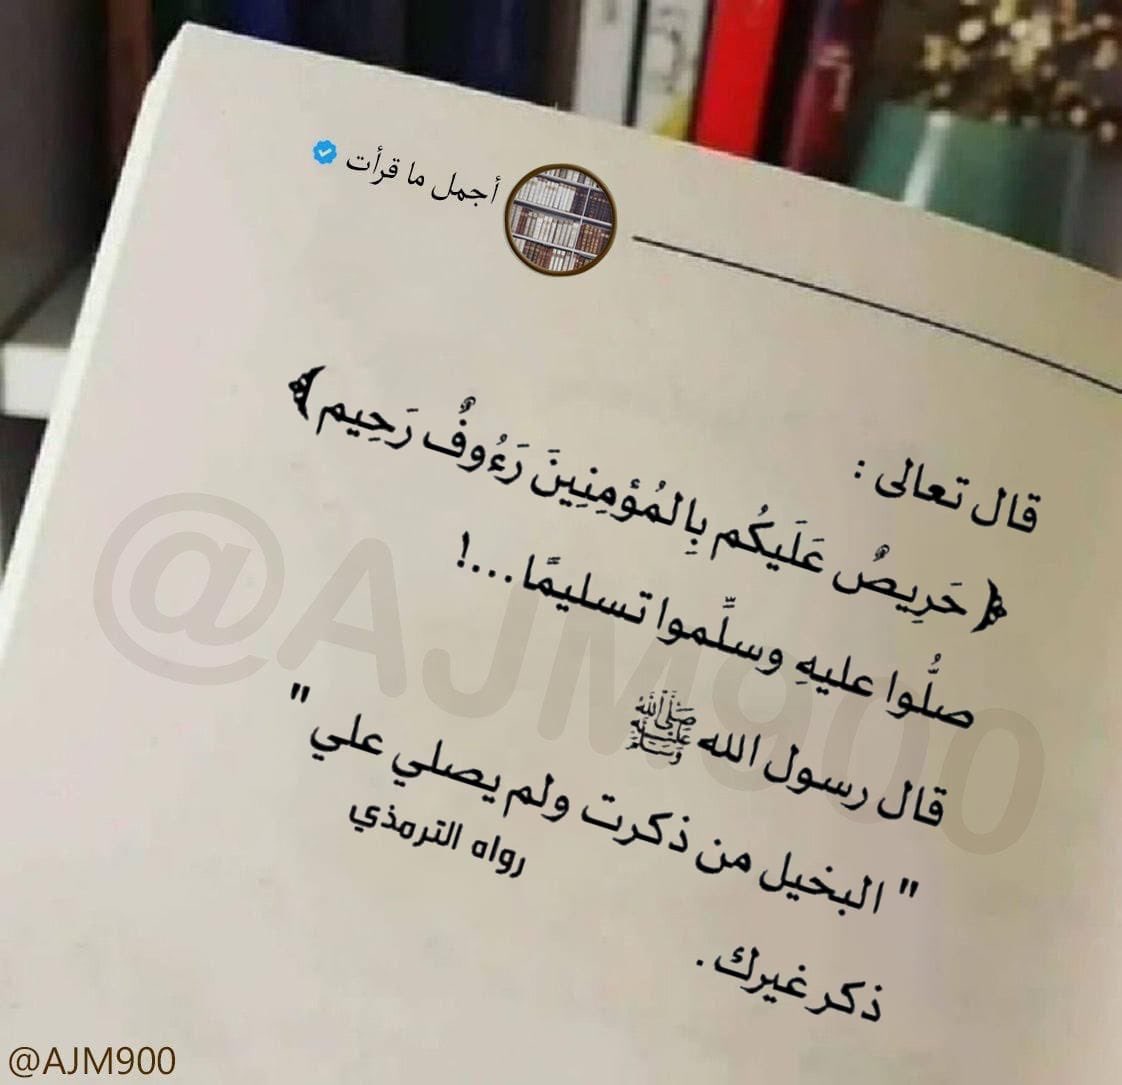 أجمل ما قرأت
قال تعالى :
﴿ حَرِيصٌ عَلَيكُم بِالمُؤمِنِينَ رَءُوفٌ رَحِيم ﴾
صلُّوا عليهِ وسلِّموا تسليمًا...!
قال رسول الله ﷺ
" البخيل من ذكرت ولم يصلي علي "
رواه الترمذي
ذكر غيرك .
@AJM900
@AJM900